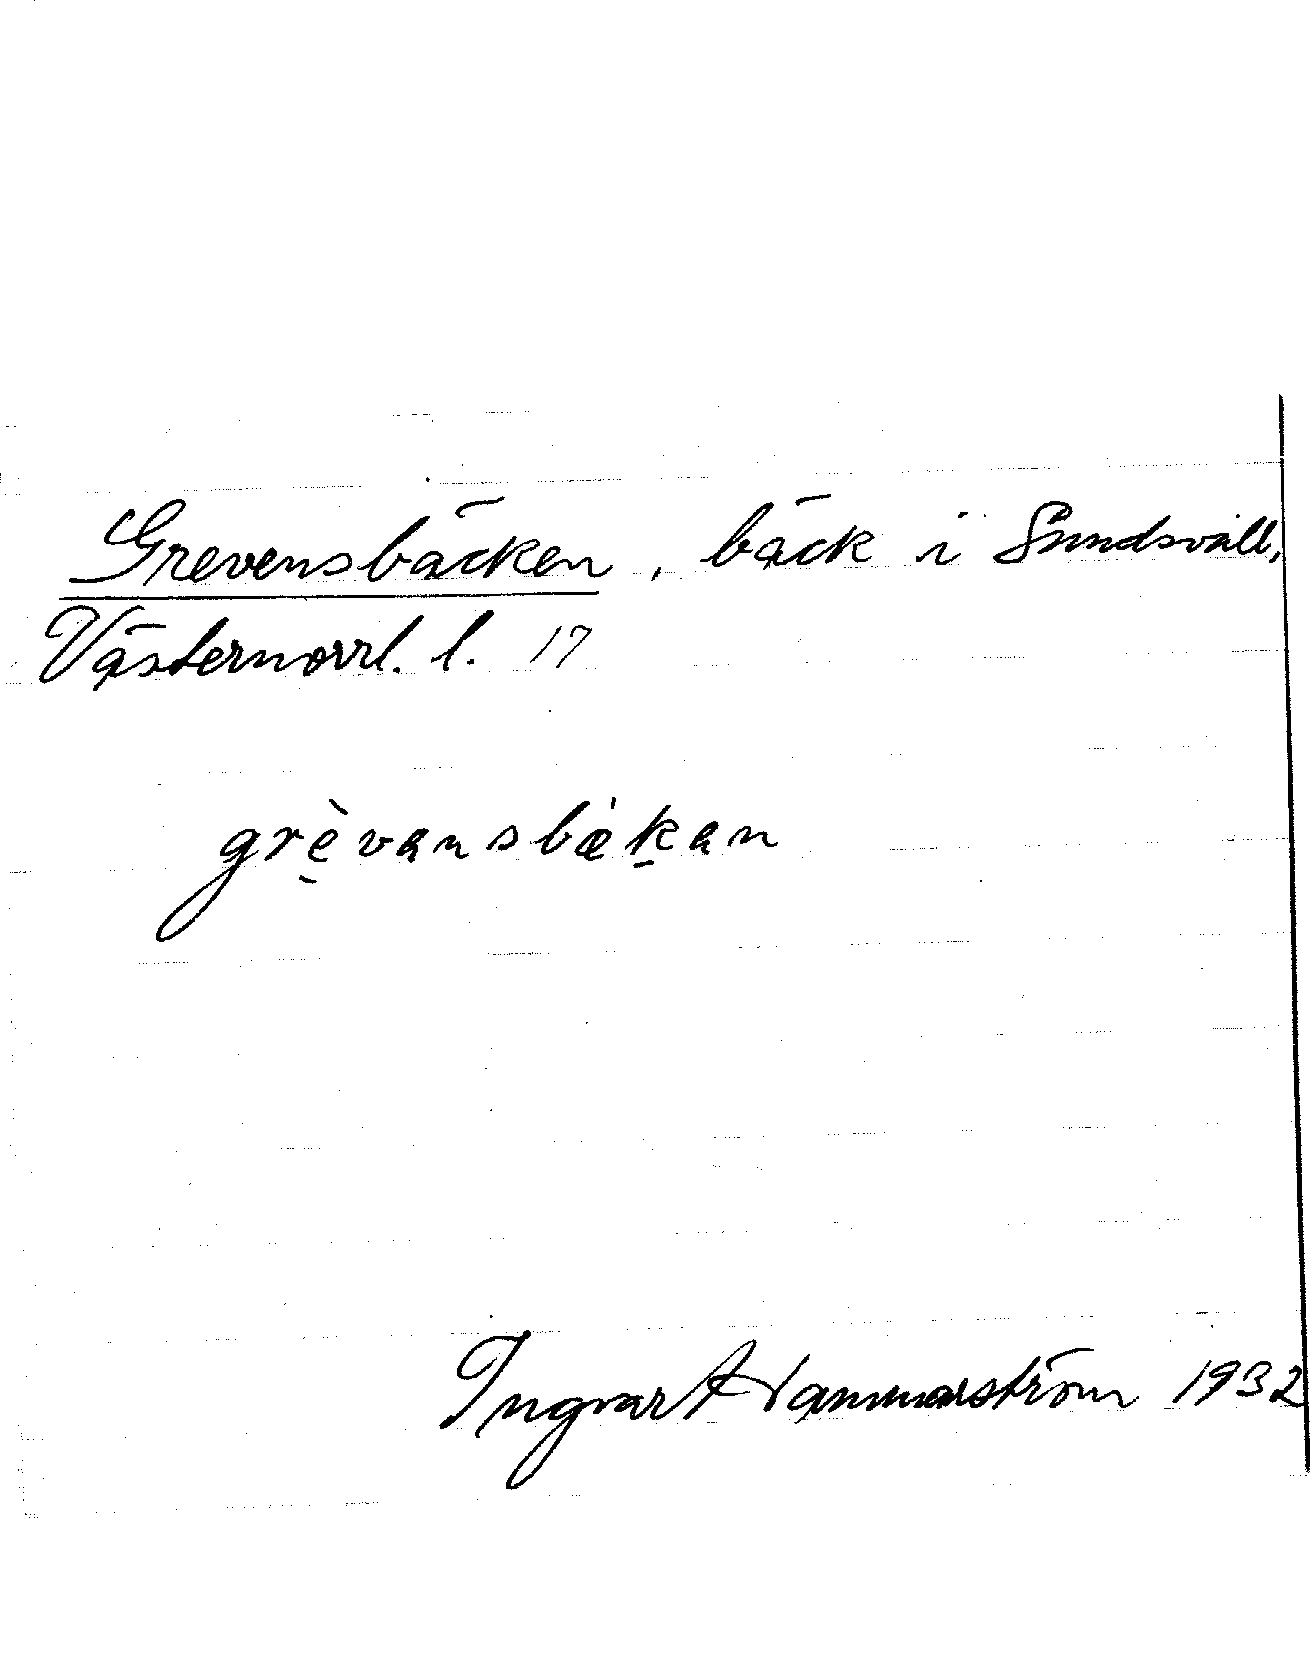 Grevensbäcken, bäck i Sundsvall,
Västernorrl. l. 17
grè̱vansbæ̀ḵan
Ingvar Hammarström 1932